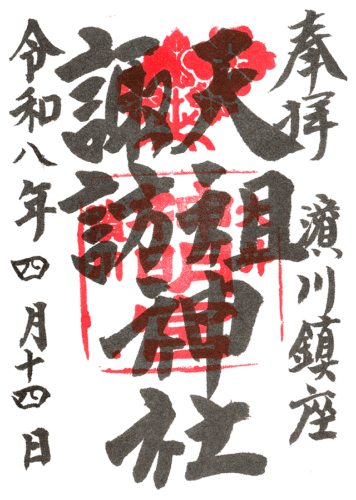 奉拝
濱川鎮座
天祖
諏訪
神社
令和八年四月十四日